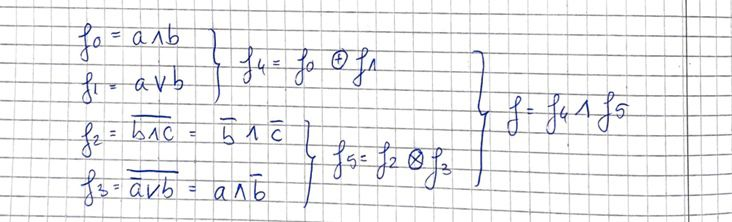 f₀ = a∧b
f₁ = a∨b
f₄ = f₀ ⊕ f₁
f₂ = \overline{b∧c} = b̅ ∧ c̅
f₃ = \overline{a̅∨b} = a∧b̅
f₅ = f₂ ⊗ f₃
f = f₄ ∧ f₅